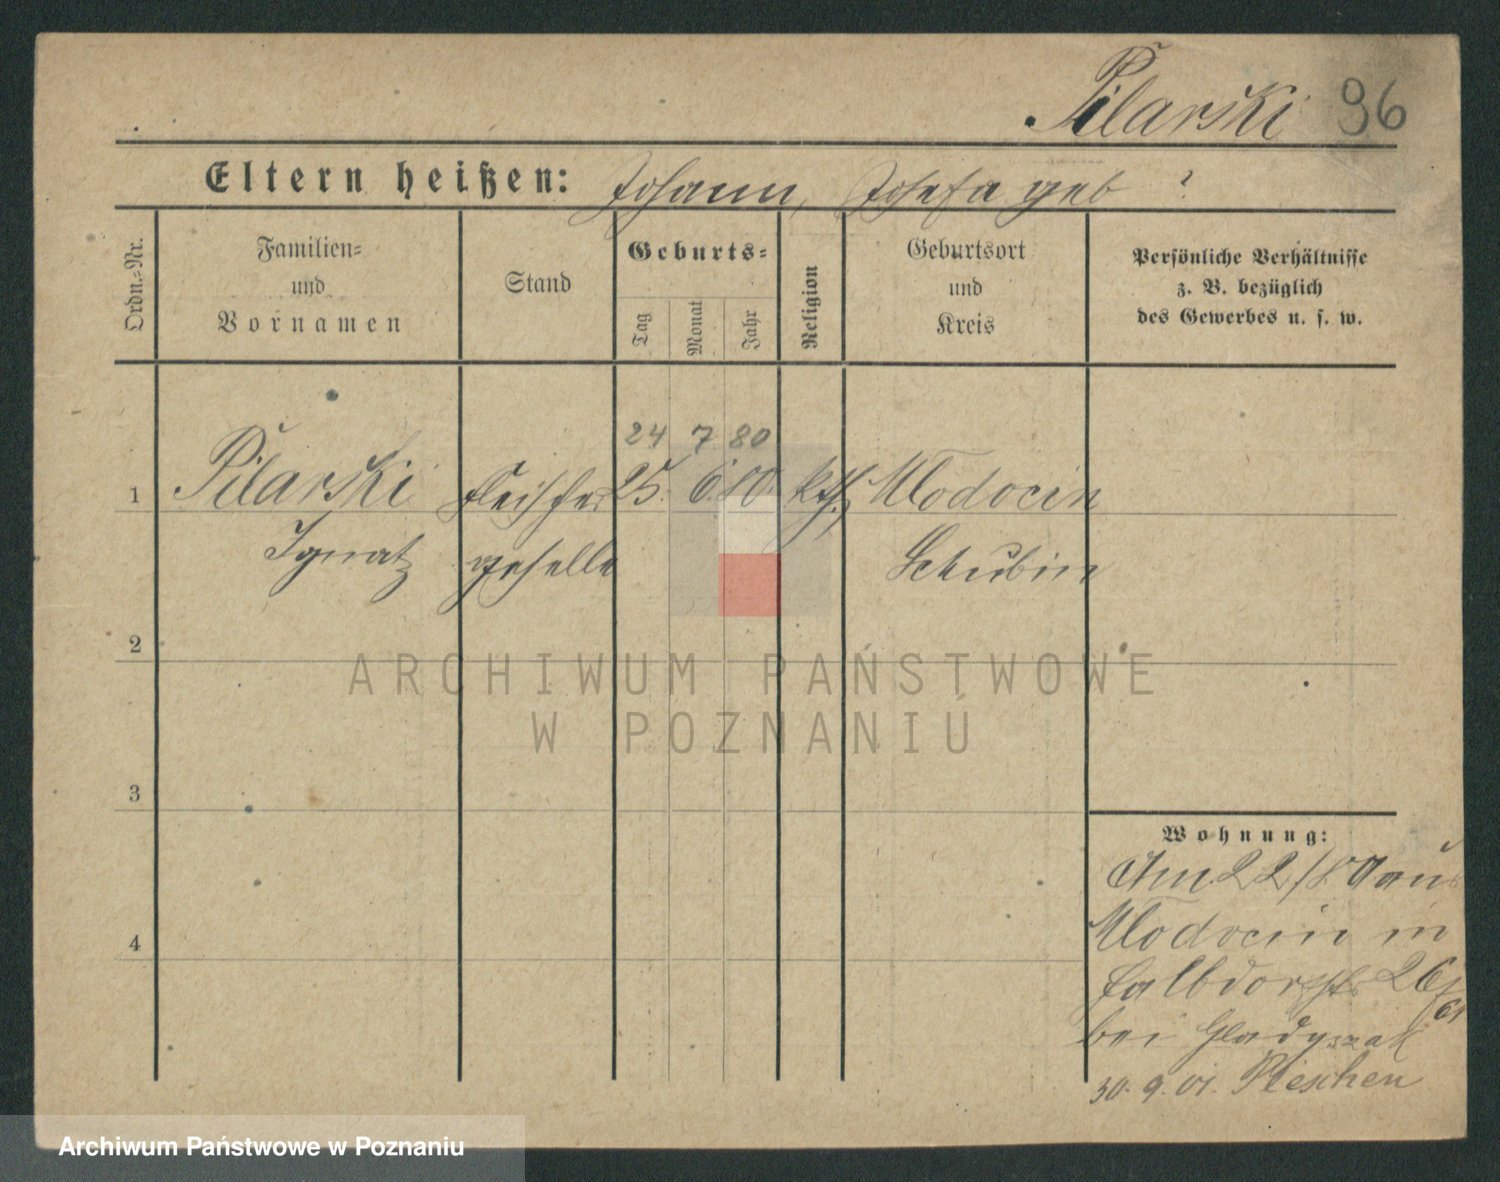 Pilarski 96
Eltern heißen: Johann, Josefa geb ?
Ordn.-Nr.
Familien-
und
Vornamen
Stand
Geburts-
Tag
Monat
Jahr
Religion
Geburtsort
und
Kreis
Persönliche Verhältnisse
z. B. bezüglich
des Gewerbes u. s. w.
24 7 80
1 Pilarski Fleischer 25. 6. 80. kth. Mlodocin
Ignatz geselle Schubin
2
ARCHIWUM PAŃSTWOWE
W POZNANIU
3
Wohnung:
Am 22/8 aus
Mlodocin in
Halbdorfstr 26
4
bei Gladyszak
30. 9. 01. Pleschen
Archiwum Państwowe w Poznaniu